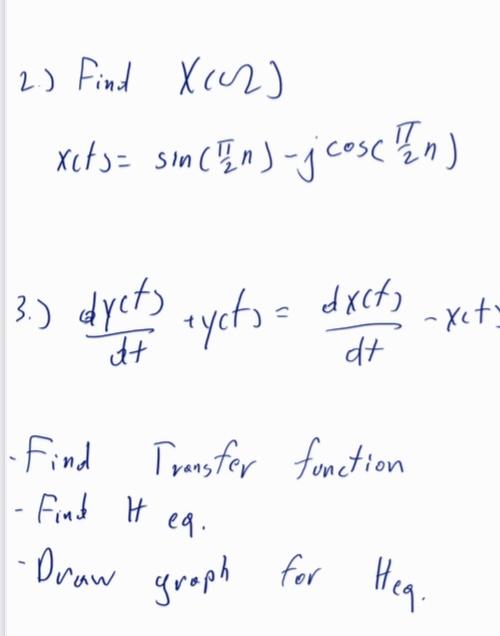 2.) Find X(ω)
x(t) = sin(π/2 n) - j cos(π/2 n)
3.) dy(t)/dt + y(t) = dx(t)/dt - x(t)
- Find Transfer function
- Find H eq.
- Draw graph for Heq.